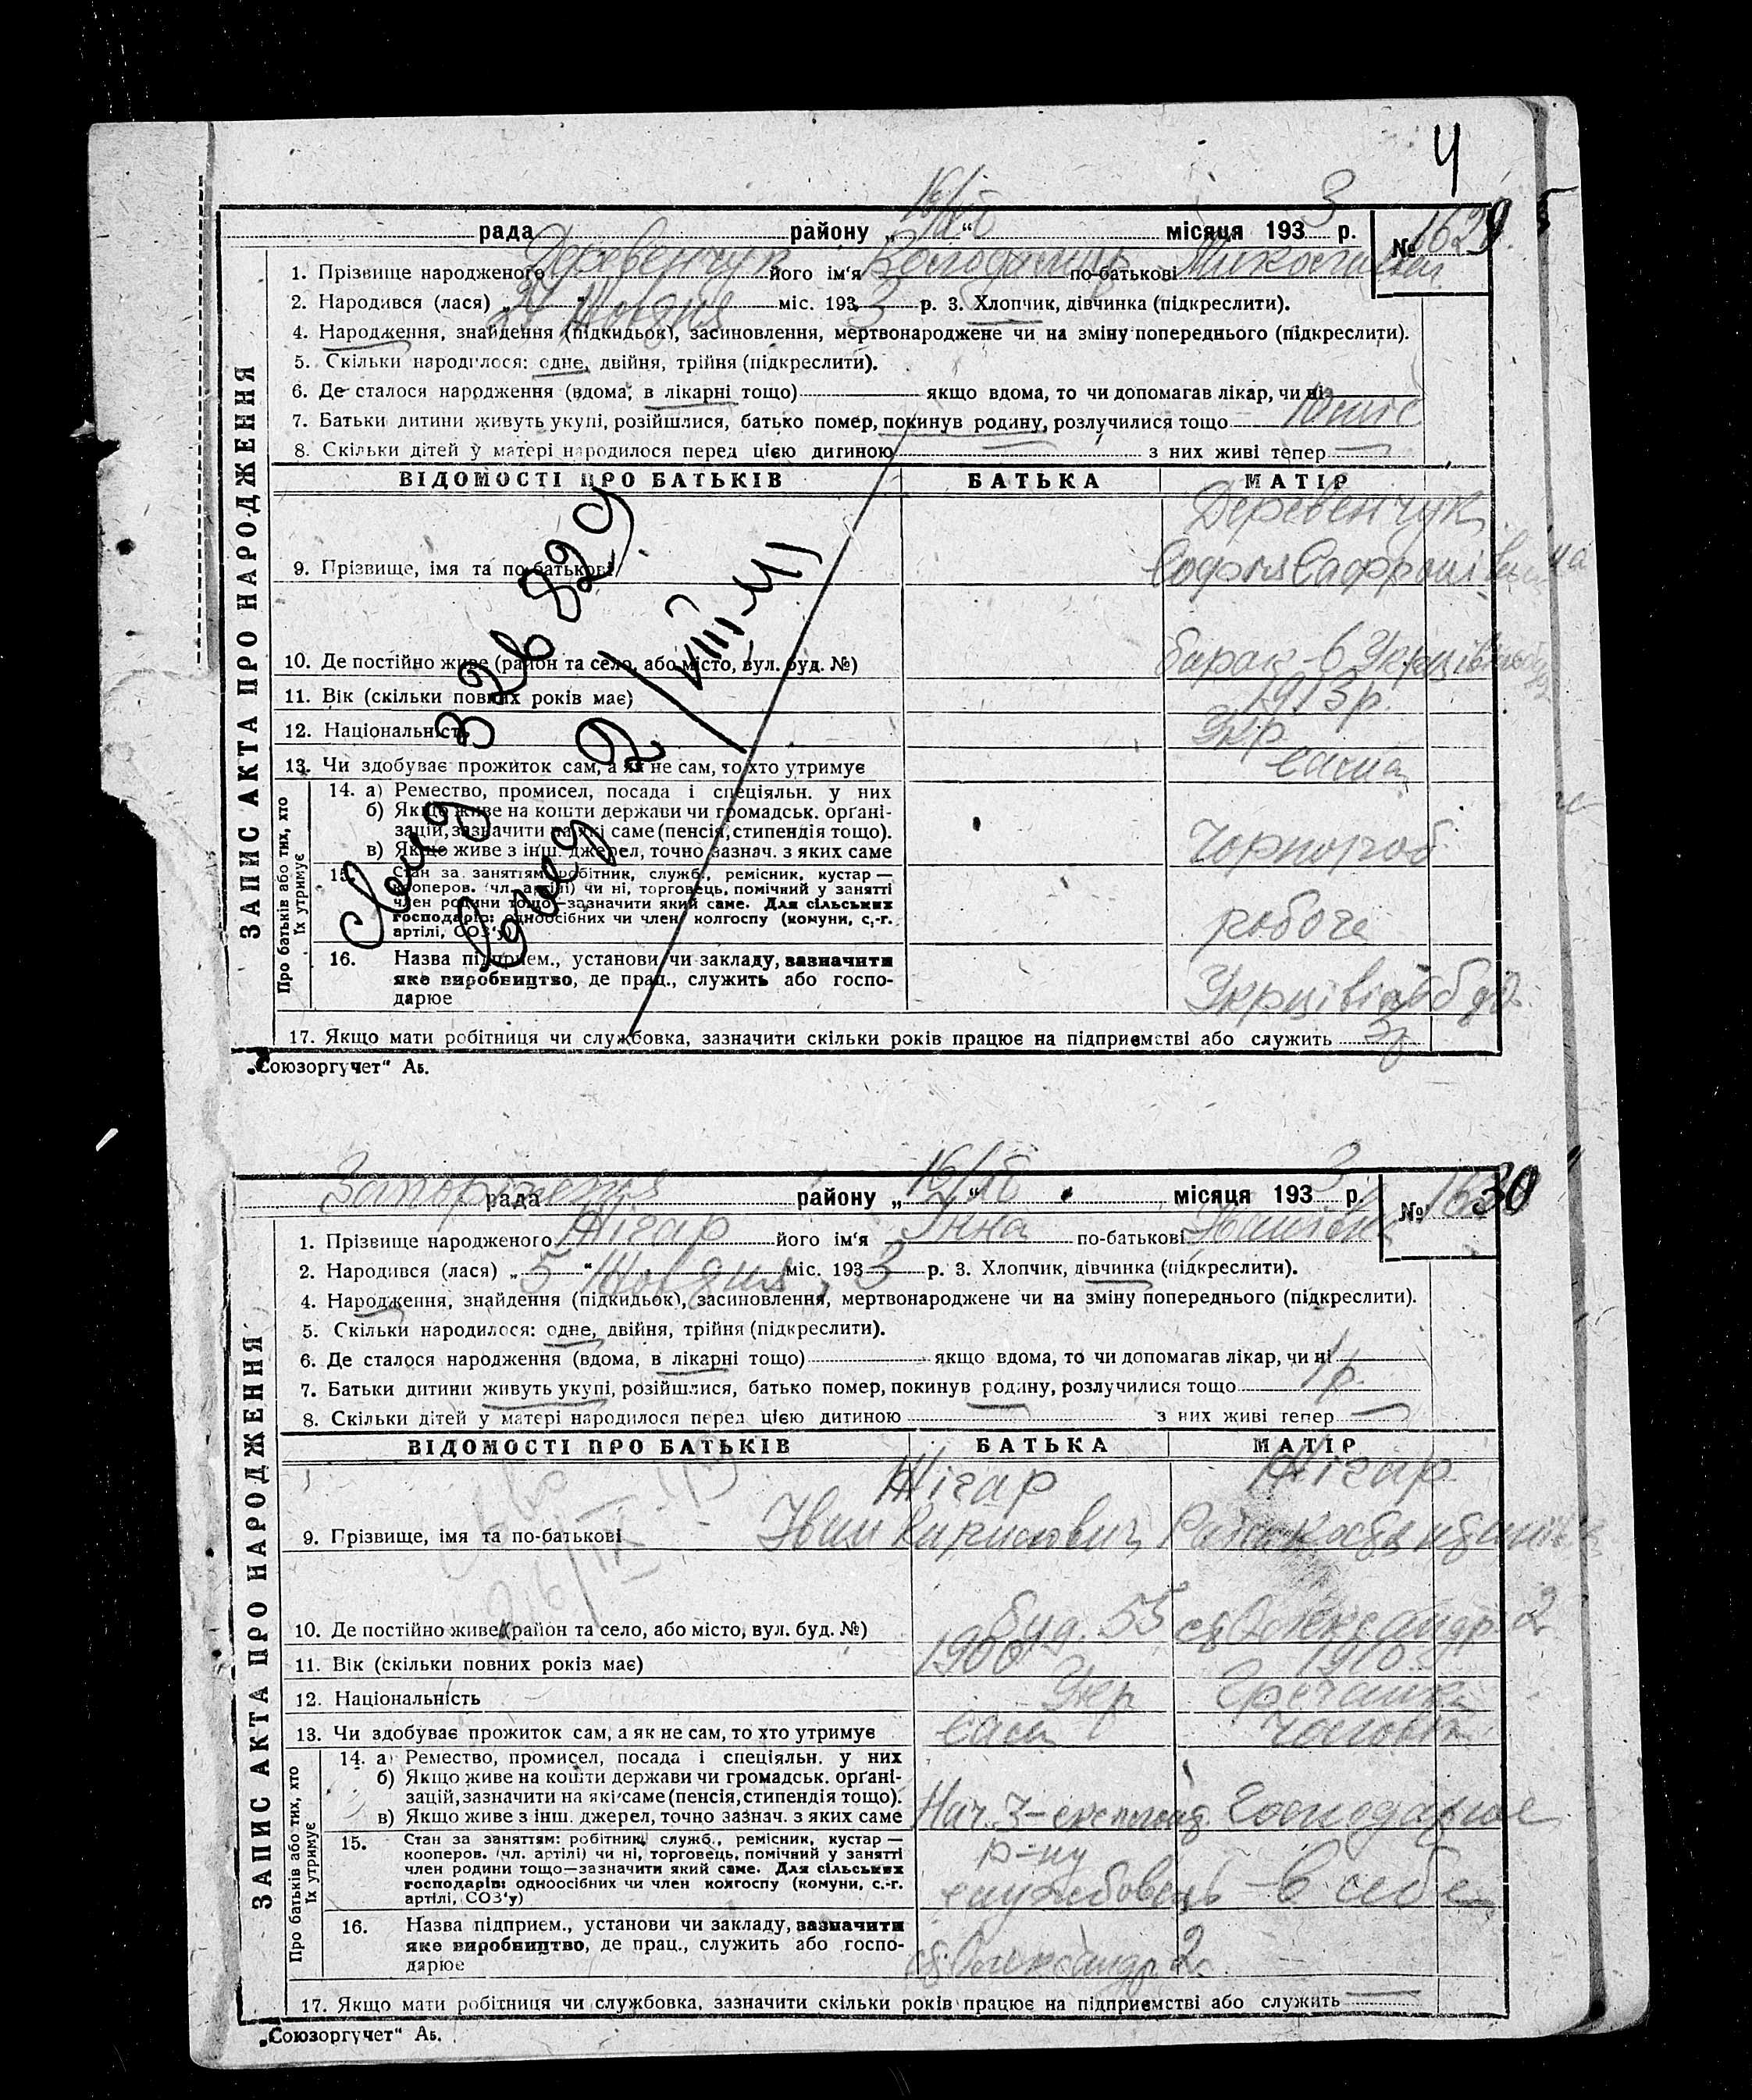 4
рада району „16/XI“ місяця 1933 р. № 1629
1. Прізвище народженого Деревенчук його ім'я Володимир по-батькові Миколайов
2. Народився (лася) „27“ Жовтня міс. 1933 р. 3. Хлопчик, дівчинка (підкреслити).
4. Народження, знайдення (підкидьок), засиновлення, мертвонароджене чи на зміну попереднього (підкреслити).
5. Скільки народилося: одне, двійня, трійня (підкреслити).
6. Де сталося народження (вдома, в лікарні тощо) якщо вдома, то чи допомагав лікар, чи ні
7. Батьки дитини живуть укупі, розійшлися, батько помер, покинув родину, розлучилися тощо
8. Скільки дітей у матері народилося перед цією дитиною з них живі тепер
ВІДОМОСТІ ПРО БАТЬКІВ БАТЬКА МАТІР
Деревенчук
9. Прізвище, імя та по-батькові Софія
10. Де постійно живе (район та село, або місто, вул. буд. №) барак 6
11. Вік (скільки повних років має) 1913 р.
12. Національність Укр
13. Чи здобуває прожиток сам, а як не сам, то хто утримує сама
14. а) Ремество, промисел, посада і спеціяльн. у них
б) Якщо живе на кошти держави чи громадськ. орґані-
зацій, зазначити на які саме (пенсія, стипендія тощо).
в) Якщо живе з інш. джерел, точно зазнач. з яких саме Чорнороб
15. Стан за заняттям: робітник, служб., ремісник, кустар —
кооперов. (чл. артілі) чи ні, торговець, помічний у занятті
член родини тощо—зазначити який саме. Для сільських
господарів: одноосібних чи член колгоспу (комуни, с.-г.
артілі, СОЗ'у) робоча
16. Назва підприєм., установи чи закладу, зазначити
яке виробництво, де прац., служить або госпо-
дарює
17. Якщо мати робітниця чи службовка, зазначити скільки років працює на підприємстві або служить
ЗАПИС АКТА ПРО НАРОДЖЕННЯ
Про батьків або тих, хто
їх утримує
„Союзоргучет“ Аб.
рада району „16/XI“ місяця 1933 р. № 1630
1. Прізвище народженого Жігар його ім'я Інна по-батькові Іванівна
2. Народився (лася) „5“ Жовтня міс. 1933 р. 3. Хлопчик, дівчинка (підкреслити).
4. Народження, знайдення (підкидьок), засиновлення, мертвонароджене чи на зміну попереднього (підкреслити).
5. Скільки народилося: одне, двійня, трійня (підкреслити).
6. Де сталося народження (вдома, в лікарні тощо) якщо вдома, то чи допомагав лікар, чи ні
7. Батьки дитини живуть укупі, розійшлися, батько помер, покинув родину, розлучилися тощо 1 р.
8. Скільки дітей у матері народилося перед цією дитиною з них живі тепер
ВІДОМОСТІ ПРО БАТЬКІВ БАТЬКА МАТІР
Жігар Жігар
9. Прізвище, імя та по-батькові Іван Кирилович
10. Де постійно живе (район та село, або місто, вул. буд. №) буд. 55 ст Олександр. 2
11. Вік (скільки повних років має) 1900 1910
12. Національність Укр Гречанка
13. Чи здобуває прожиток сам, а як не сам, то хто утримує сам чоловік
14. а) Ремество, промисел, посада і спеціяльн. у них
б) Якщо живе на кошти держави чи громадськ. орґані-
зацій, зазначити на які саме (пенсія, стипендія тощо).
в) Якщо живе з інш. джерел, точно зазнач. з яких саме Нач. 3-експлоат. господарює
р-ну
15. Стан за заняттям: робітник, служб., ремісник, кустар —
кооперов. (чл. артілі) чи ні, торговець, помічний у занятті
член родини тощо—зазначити який саме. Для сільських
господарів: одноосібних чи член колгоспу (комуни, с.-г.
артілі, СОЗ'у) службовець в себе
16. Назва підприєм., установи чи закладу, зазначити
яке виробництво, де прац., служить або госпо-
дарює ст Олександр. 2
17. Якщо мати робітниця чи службовка, зазначити скільки років працює на підприємстві або служить
ЗАПИС АКТА ПРО НАРОДЖЕННЯ
Про батьків або тих, хто
їх утримує
„Союзоргучет“ Аб.